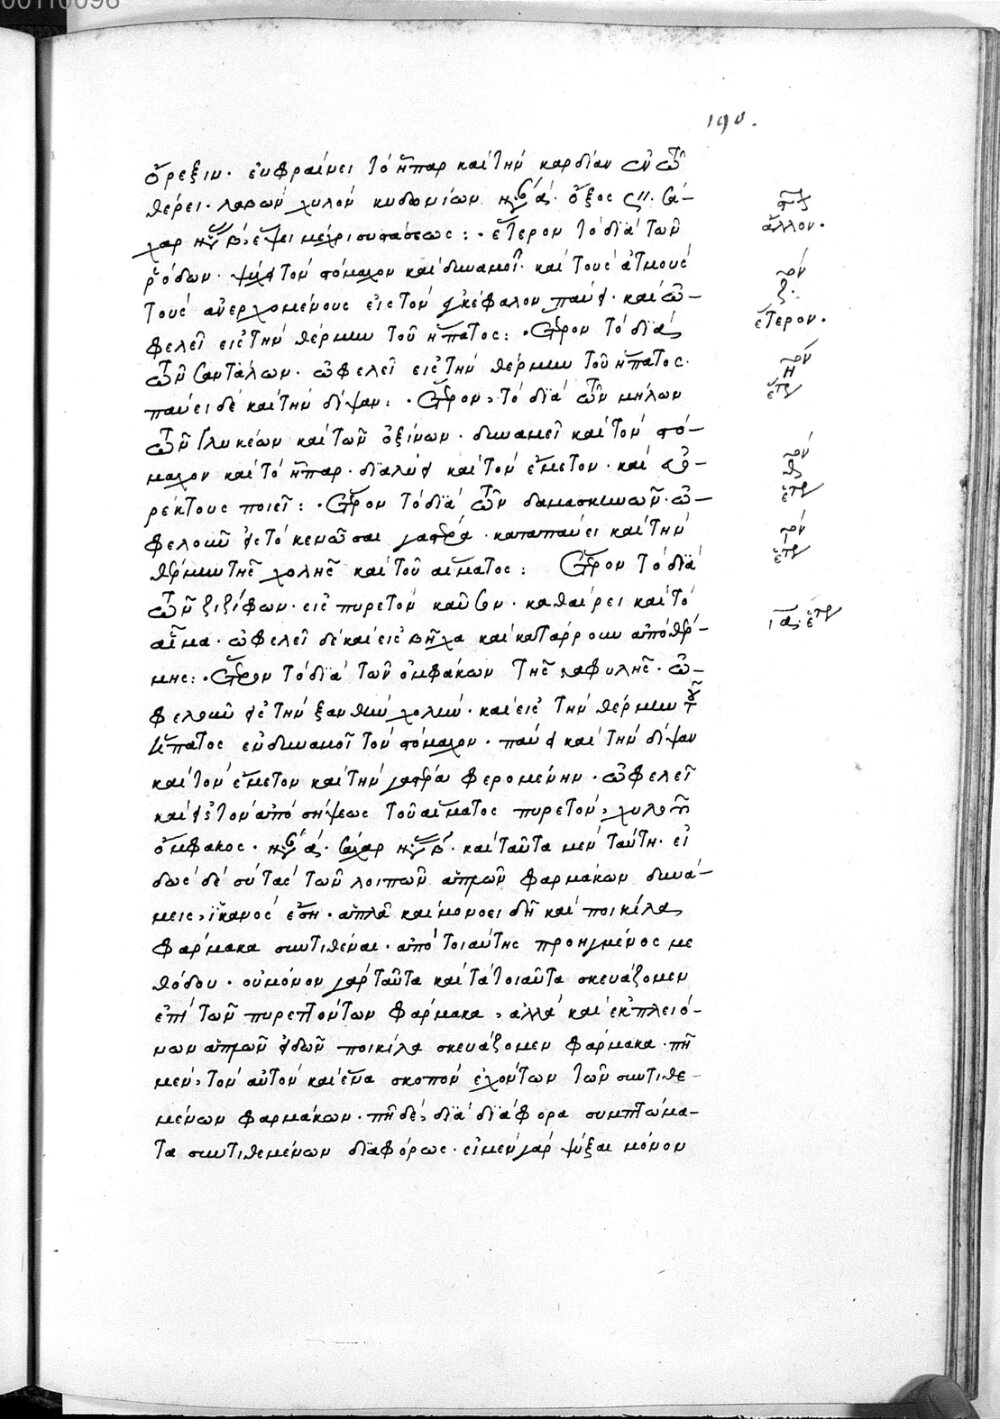 190.
ὄρεξιν. εὐφραίνει τὸ ἧπαρ καὶ τὴν καρδίαν ἐν τῷ
θέρει. λαβὼν χυλὸν κυδωνίων ἡς α. ὄξος ς". σά-
χαρ β. ἕψει μέχρι συστάσεως: ἕτερον τὸ διὰ τῶν
ῥόδων. ψύχει τὸν στόμαχον καὶ δυναμοῖ. καὶ τοὺς ἀτμοὺς
τοὺς ἀνερχομένους εἰς τὸν ἐγκέφαλον παύει. καὶ ὠ-
φελεῖ εἰς τὴν θέρμην τοῦ ἥπατος: ἕτερον τὸ διὰ
τῶν σαντάλων. ὠφελεῖ εἰς τὴν θέρμην τοῦ ἥπατος.
παύει δὲ καὶ τὴν δίψαν: ἕτερον, τὸ διὰ τῶν μήλων
τῶν γλυκέων καὶ τῶν ὀξίνων. δυναμεῖ καὶ τὸν στό-
μαχον καὶ τὸ ἧπαρ. διαλύει καὶ τὸν ἔμετον. καὶ εὐο-
ρέκτους ποιεῖ: ἕτερον τὸ διὰ τῶν δαμασκηνῶν. ὠ-
φελοῦν εἰς τὸ κενῶσαι γαστέρα. καταπαύει καὶ τὴν
θέρμην τῆς χολῆς καὶ τοῦ αἵματος: ἕτερον τὸ διὰ
τῶν ζιζίφων. εἰς πυρετὸν καῦσον. καθαίρει καὶ τὸ
αἷμα. ὠφελεῖ δὲ καὶ εἰς βῆχα καὶ κατάρρουν ἀπὸ θέρ-
μης: ἕτερον τὸ διὰ τῶν ὀμφάκων τῆς σταφυλῆς. ὠ-
φελοῦν εἰς τὴν ξανθὴν χολήν. καὶ εἰς τὴν θέρμην τοῦ
ἥπατος ἐνδυναμοῖ τὸν στόμαχον. παύει καὶ τὴν δίψαν
καὶ τὸν ἔμετον καὶ τὴν γαστέρα φερομένην. ὠφελεῖ
καὶ εἰς τὸν ἀπὸ σήψεως τοῦ αἵματος πυρετόν, χυλοῦ
ὄμφακος. α. σάχαρ β. καὶ ταῦτα μὲν ταύτη. εἰ
δὼς δὲ σὺ τὰς τῶν λοιπῶν ἁπλῶν φαρμάκων δυνά-
μεις, ἱκανὸς ἔση. ἁπλᾶ καὶ μονοειδῆ καὶ ποικίλα
φάρμακα συντιθέναι. ἀπὸ τοιαύτης προηγμένος με
θόδου. οὐ μόνον γὰρ ταῦτα καὶ τὰ τοιαῦτα σκευάζομεν
ἐπὶ τῶν πυρεττόντων φάρμακα, ἀλλὰ καὶ ἐκ πλειό-
νων ἁπλῶν εἰδῶν ποικίλα σκευάζομεν φάρμακα. πῆ
μὲν, τὸν αὐτὸν καὶ ἕνα σκοπὸν ἐχόντων τῶν συντιθε-
μένων φαρμάκων. πῆ δὲ, διὰ διάφορα συμπτώμα-
τα συντιθεμένων διαφόρως. εἰ μὲν γὰρ ψύξαι μόνον
ἄλλον.
ἕτερον.